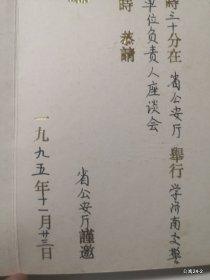 時三十分在 省公安厅 舉行 学济南交警
单位负责人座谈会
時 恭請
省公安厅謹邀
一九九五年十一月廿三日